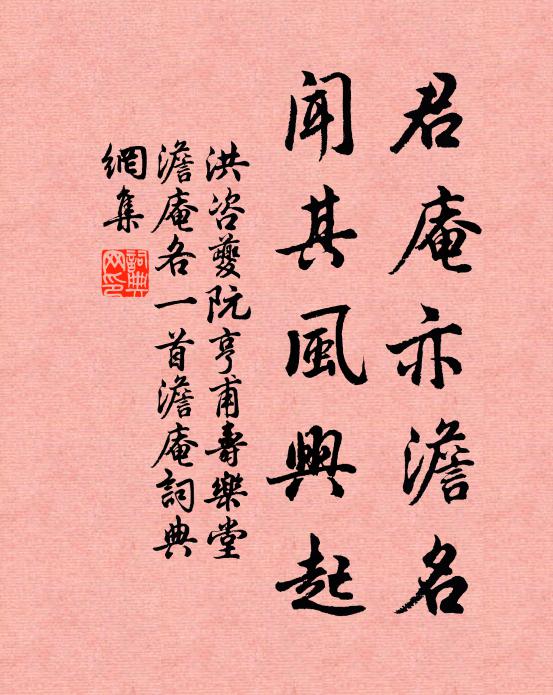 君庵亦澹名
聞其風興起
洪咨夔阮亨甫壽樂堂
澹庵各一首澹庵詞典
網集
詞典網印